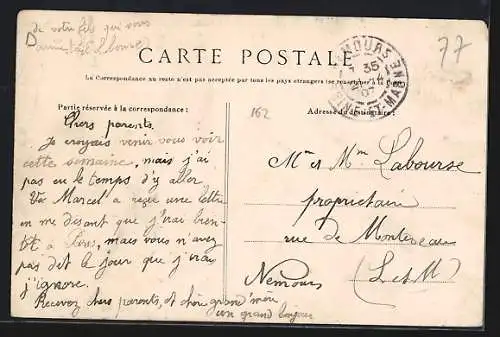 de votre fils qui vous
CARTE POSTALE
La Correspondance au recto n'est pas acceptée par tous les pays étrangers (se renseigner à la
Partie réservée à la correspondance :
Adresse du destinataire :
NEMOURS
7 35
07
SEINE-ET-MARNE
77
162
Chers parents.
Je croyais venir vous voir
cette semaine, mais j'ai
pas eu le temps d'y aller
Marcel a reçue une lettre
en me disant que j'irai bien-
tôt a Paris, mais vous n'avez
pas dit le jour que j'irai
j'ignore.
Recevez chers parents, et chère grand'mère
un grand bonjour
Mr et Mme Labourse
propriétaire
rue de Montereau
Nemours (S et M)